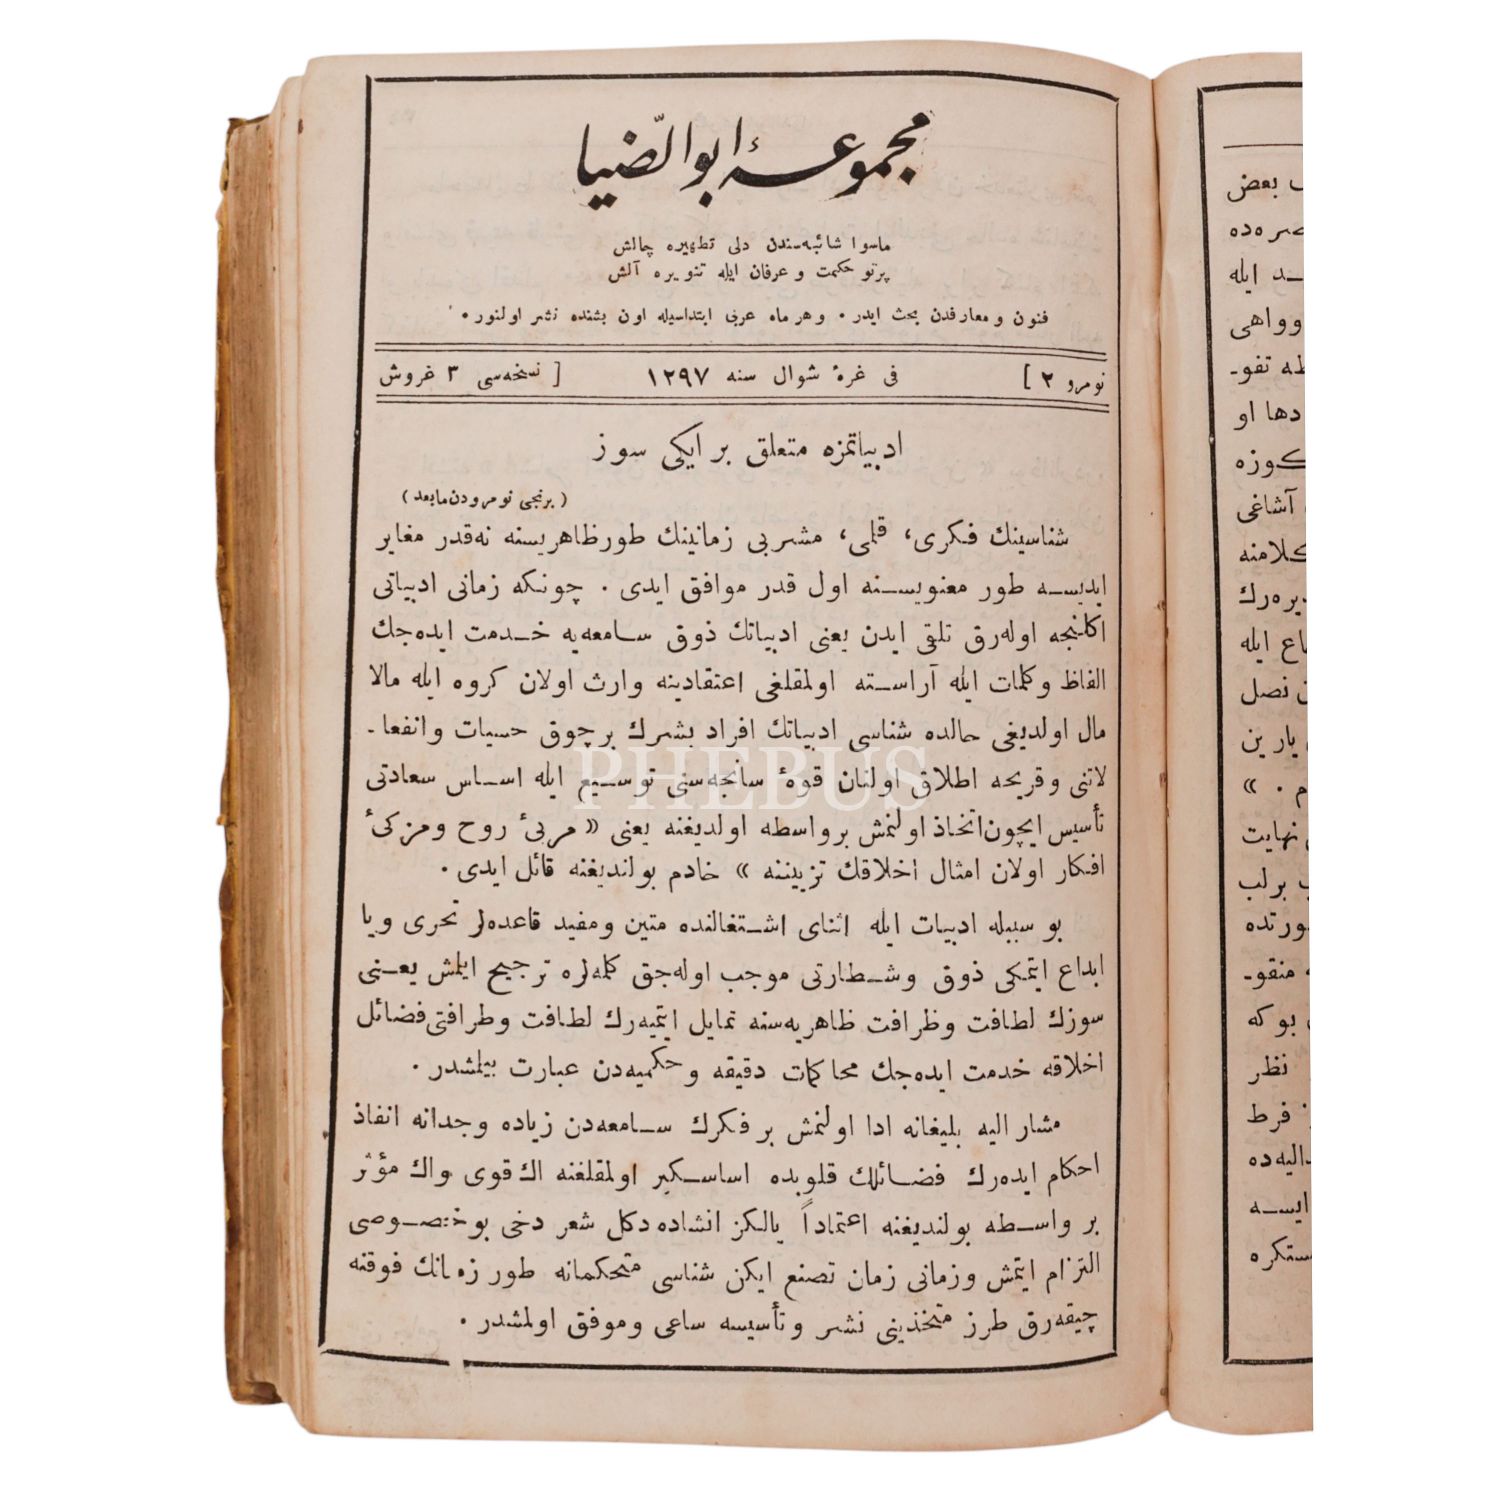 مجموعۀ ابوالضّیا
ماسوا شائبه‌سندن دلی تطهیره چالش
پرتو حکمت و عرفان ایله تنویره آلش
فنون و معارفدن بحث ایدر · و هر ماه عربی ابتداسیله اون بشنده نشر اولنور ·
نومرو ٢ ]
فی غرۀ شوال سنه ١٢٩٧
[ نسخه‌سی ٣ غروش
ادبیاتمزه متعلق بر ایکی سوز
( برنجی نومرودن مابعد )
شناسینك فکری، قلمی، مشربی زمانینك طور ظاهریسنه نه‌قدر مغایر
ایدیسه طور معنویسنه اول قدر موافق ایدی · چونکه زمانی ادبیاتی
اکلنجه اوله‌رق تلقی ایدن یعنی ادبیاتك ذوق سامعه‌یه خدمت ایده‌جك
الفاظ و کلمات ایله آراسته اولمقلغی اعتقادینه وارث اولان کروه ایله مالا
مال اولدیغی حالده شناسی ادبیاتك افراد بشرك بر چوق حسیات و انفعا-
لاتنی و قریحه اطلاق اولنان قوۀ سانجه‌سنی توسیع ایله اساس سعادتی
تأسیس ایچون اتخاذ اولنمش بر واسطه اولدیغنه یعنی « مربئ روح و مزکئ
افکار اولان امثال اخلاقك تزییننه » خادم بولندیغنه قائل ایدی ·
بو سببله ادبیات ایله اثنای اشتغالنده متین و مفید قاعده‌لر تحری و یا
ابداع ایتمکی ذوق و شطارتی موجب اوله‌جق کلمه‌لره ترجیح ایلمش یعنی
سوزك لطافت و ظرافت ظاهریه‌سنه تمایل ایتمیه‌رك لطافت و ظرافتی فضائل
اخلاقه خدمت ایده‌جك محاکمات دقیقه و حکمیه‌دن عبارت بیلمشدر ·
مشار الیه بلیغانه ادا اولنمش بر فکرك سامعه‌دن زیاده وجدانه انفاذ
احکام ایده‌رك فضائلك قلوبده اساسکیر اولمقلغنه اك قوی و اك مؤثر
بر واسطه بولندیغنه اعتماداً یالکز انشاده دکل شعر دخی بو خصوصی
التزام ایتمش و زمانی زمان تصنع ایکن شناسی متحکمانه طور زمانك فوقنه
چیقه‌رق طرز متخذینی نشر و تأسیسه ساعی و موفق اولمشدر ·
بعض
ایله
و واهی
تفو-
دها او
کوزه
آشاغی
کلامنه
ایله
نصل
یارین
م · »
نهایت
برلب
منقو-
بو که
نظر
فرط
ایسه
PHEBUS